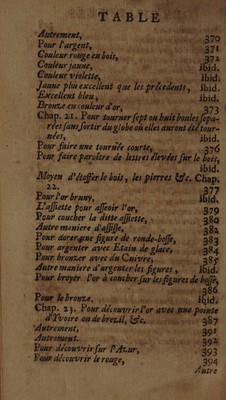 TABLE
Autrement, 370
Pour l'argent, 371
Couleur rouge en bois, 372
Couleur jaune, Ibid.
Couleur violette, Ibid.
Jaune plus excellent que les précedents, Ibid.
Excellent bleu, Ibid.
Bronze en couleur d'or, 373
Chap. 21. Pour tourner sept ou huit boules sepa-
rées sans sortir du globe où elles auront été tour-
nées, Ibid.
Pour faire une tournée courte, 376
Pour faire paroître de lettres élevées sur le bois,
Ibid.
Moyen d'étoffer le bois, les pierres &c. Chap.
22. 377
Pour l'or bruny, Ibid.
L'assiette pour asseoir l'or, 379
Pour coucher la ditte assiette, 380
Autre maniere d'assiette, 382
Pour dorer une figure de ronde-bosse, 383
Pour argenter avec Etain de glace, 384
Pour bronzer avec du Cuivre, 385
Autre maniere d'argenter les figures, Ibid.
Pour broyer l'or à coucher sur les figures de bosse,
386
Pour le bronze. Ibid.
Chap. 23. Pour découvrir l'or avec une pointe
d'Yvoire ou de brezil, &c. 387
Autrement, 391
Autrement. 392
Pour découvrir sur l'Azur, 393
Pour découvrir le rouge, 394
Autre